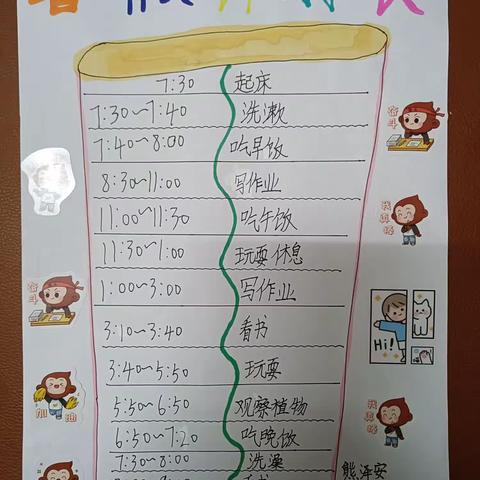 7:30 起床
7:30~7:40 洗漱
7:40~8:00 吃早饭
8:30~11:00 写作业
11:00~11:30 吃午饭
11:30~1:00 玩耍 休息
1:00~3:00 写作业
3:10~3:40 看书
3:40~5:50 玩耍
5:50~6:50 观察植物
6:50~7:20 吃晚饭
7:30~8:00 洗澡
熊泽安
奋斗
我真棒
奋斗
Hi!
加油
我真棒